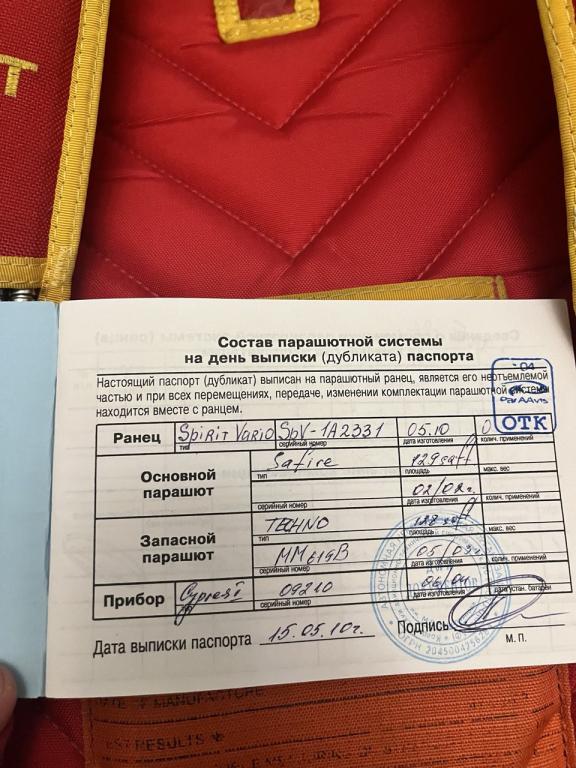 T
Состав парашютной системы
на день выписки (дубликата) паспорта
Настоящий паспорт (дубликат) выписан на парашютный ранец, является его неотъемлемой
частью и при всех перемещениях, передаче, изменении комплектации парашютной системы
находится вместе с ранцем.
04
ParAAvis
ОТК
Ранец Spirit Vario SpV-1A2331 05.10 0
тип серийный номер дата изготовления колич. применений
Основной парашют Safire 129 sqft
тип площадь макс. вес
02/02г.
серийный номер дата изготовления колич. применений
Запасной парашют TECHNO 128 sqf
тип площадь макс. вес
MM619B 05/03
серийный номер дата изготовления колич. применений
Прибор Cypres 09210 06/04
серийный номер дата изготовления дата устан. батареи
Дата выписки паспорта 15.05.10г. Подпись
М. П.
MANUFACTURE
TEST RESULTS